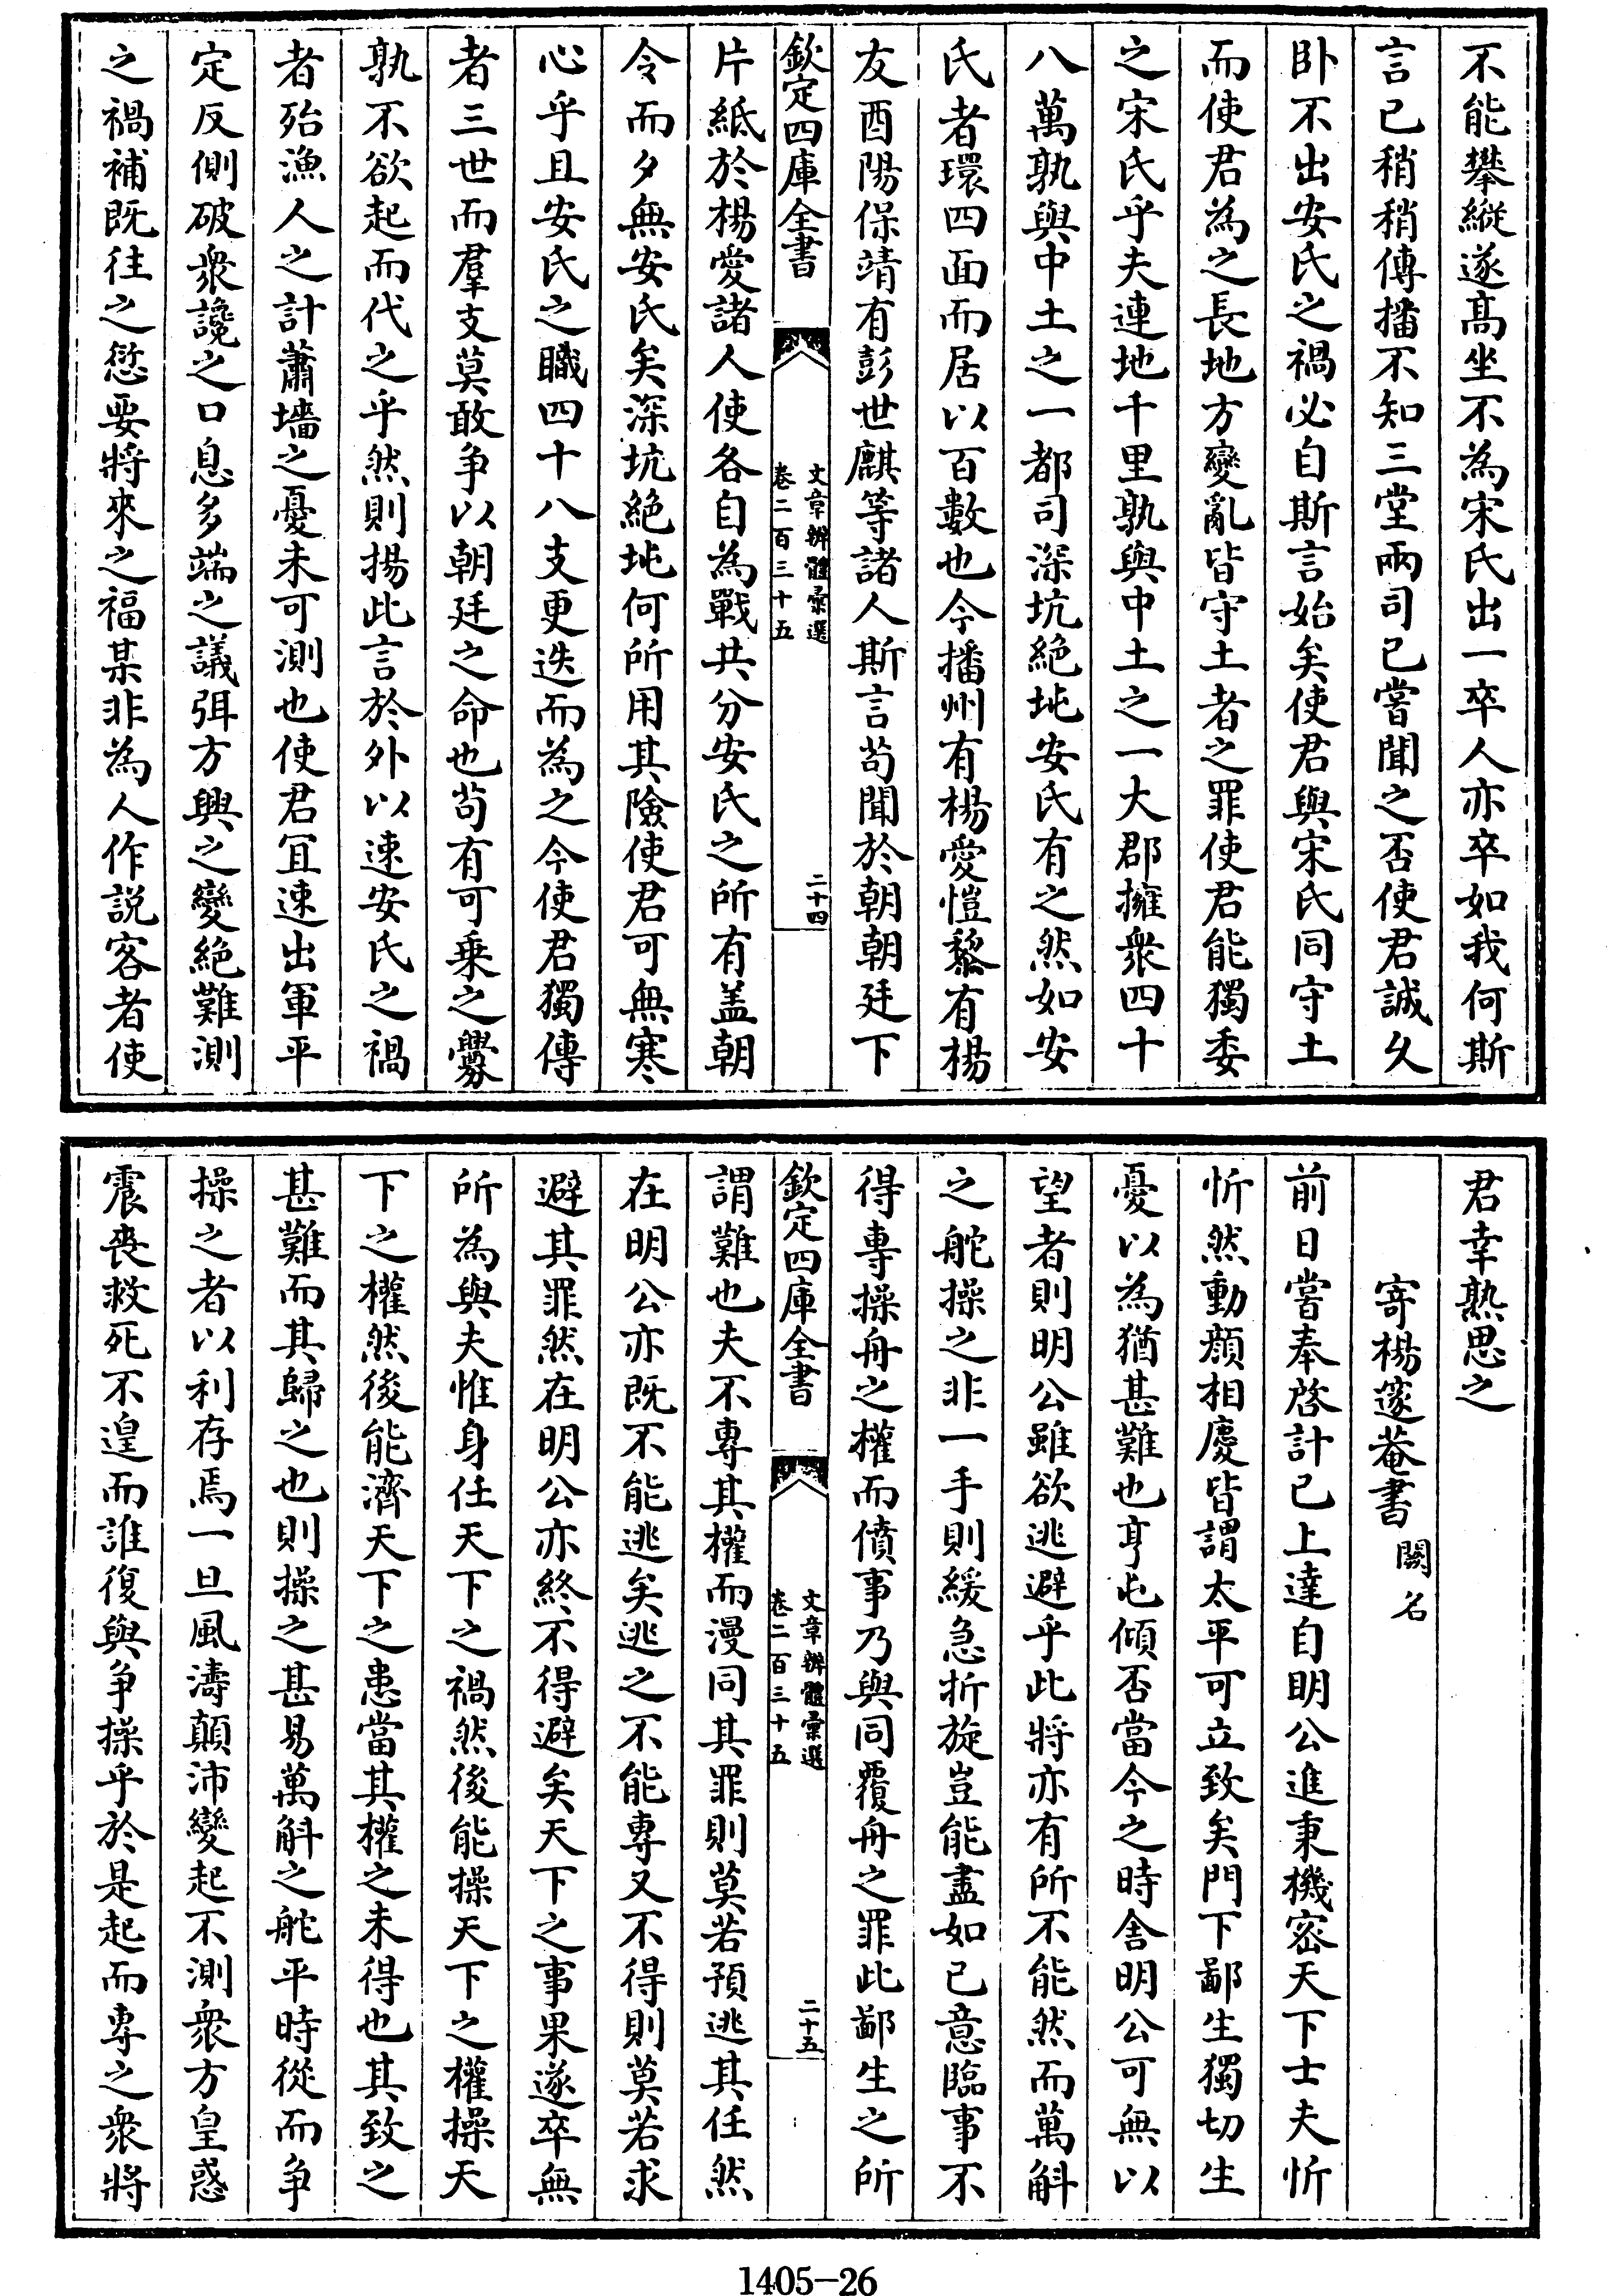 不能攀縱遂髙坐不為宋氏出一卒人亦卒如我何斯
言已稍稍傳播不知三堂兩司已嘗聞之否使君誠久
卧不出安氏之禍必自斯言始矣使君與宋氏同守土
而使君為之長地方變亂皆守土者之罪使君能獨委
之宋氏乎夫連地千里孰與中土之一大郡擁衆四十
八萬孰與中土之一都司深坑絶坉安氏有之然如安
氏者環四面而居以百數也今播州有楊愛愷黎有楊
友酉陽保靖有彭世麒等諸人斯言茍聞於朝朝廷下
欽定四庫全書
文章辨體彙選
卷二百三十五
二十四
片紙於楊愛諸人使各自為戰共分安氏之所有盖朝
令而夕無安氏矣深坑絶坉何所用其險使君可無寒
心乎且安氏之職四十八支更迭而為之今使君獨傳
者三世而羣支莫敢争以朝廷之命也茍有可乗之釁
孰不欲起而代之乎然則揚此言於外以速安氏之禍
者殆漁人之計蕭墻之憂未可測也使君冝速出軍平
定反側破衆讒之口息多端之議弭方興之變絶難測
之禍補既往之愆要將來之福某非為人作説客者使
君幸熟思之
寄楊邃菴書 闕名
前日嘗奉啓計已上達自明公進秉機宻天下士夫忻
忻然動顔相慶皆謂太平可立致矣門下鄙生獨切生
憂以為猶甚難也亨屯傾否當今之時舍明公可無以
望者則明公雖欲逃避乎此將亦有所不能然而萬斛
之舵操之非一手則緩急折旋豈能盡如已意臨事不
得專操舟之權而僨事乃與同覆舟之罪此鄙生之所
欽定四庫全書
文章辨體彙選
卷二百三十五
二十五
謂難也夫不專其權而漫同其罪則莫若預逃其任然
在明公亦既不能逃矣逃之不能專又不得則莫若求
避其罪然在明公亦終不得避矣天下之事果遂卒無
所為與夫惟身任天下之禍然後能操天下之權操天
下之權然後能濟天下之患當其權之未得也其致之
甚難而其歸之也則操之甚易萬斛之舵平時從而争
操之者以利存焉一旦風濤顛沛變起不測衆方皇惑
震喪救死不遑而誰復與争操乎於是起而専之衆將
1405-26